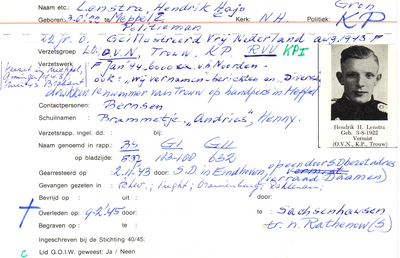 Naam etc.: Lenstra, Hendrik Hajo Gron
Geboren: 3-8-'22 te Meppel Kerk: N.H. Politiek: KP
Politieman
22 jr. Geillustreerd Vrij Nederland aug. 1943
Verzetsgroep L.O. O.V.N. Trouw. K.P. RVV KPI
Verzetswerk : Jan '44 6000 ex. v.h. Noorden.
ook: „Wij vernamen" berichten en Diverse
drukken nummer van Trouw op handpers in Meppel
Contactpersonen: Bernsen
Schuilnamen : Brammetje, „Andries", Henny.
Verzetsrapp. ingel. dd. : bij:
Naam genoemd in rapp. : BS GI GII
op bladzijde: 532 100-100 652
Gearresteerd op : 2-11-43 door: S.D. in Eindhoven, op een door SD bezet adres
vermist (verraad Daamen)
Gevangen gezeten in : Vught, Oranienburg,
Bevrijd op : uit door
Overleden op : 9-2-'45 door: te : Sachsenhausen
Begraven op : te : tr. n. Rathenow (S)
Ingeschreven bij de Stichting 40/45:
C Lid G.O.I.W. geweest: Ja / Neen
Hendrik H. Lenstra
Geb. 3-8-1922
Vermist
(O.V.N., K.P., Trouw)